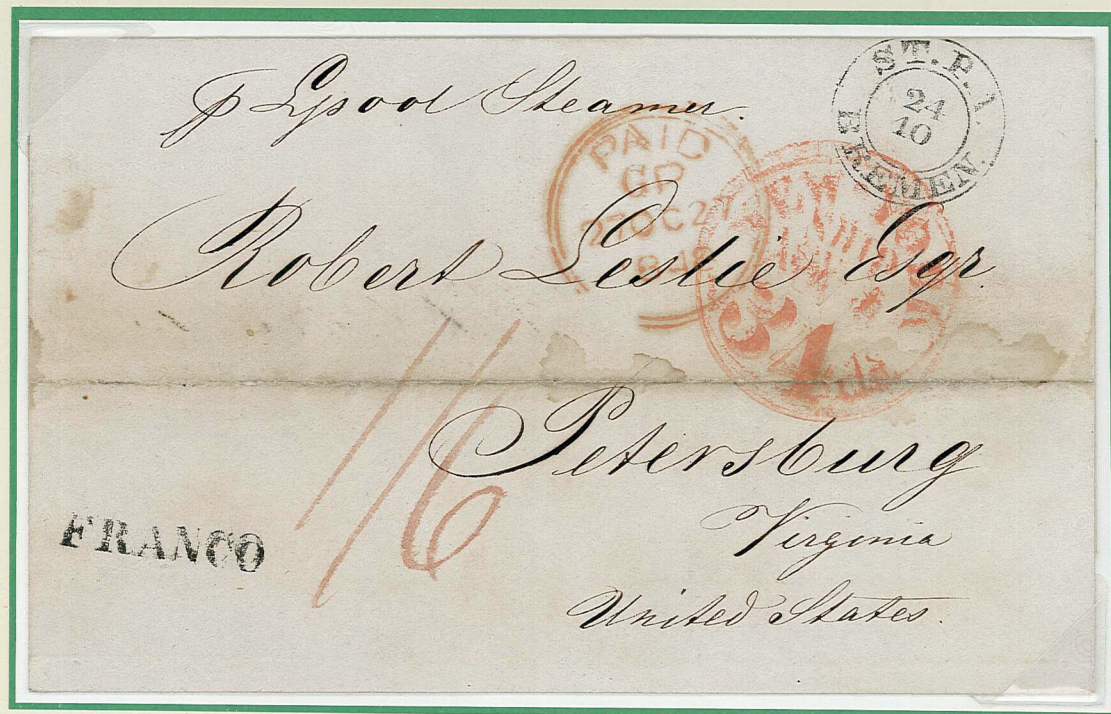 p Lpool Steamer.
ST. P. A.
24
10
BREMEN.
PAID
27OC27
184
Robert Leslie Esqr.
34
cts
1/6
Petersburg
FRANCO
Virginia
United States.